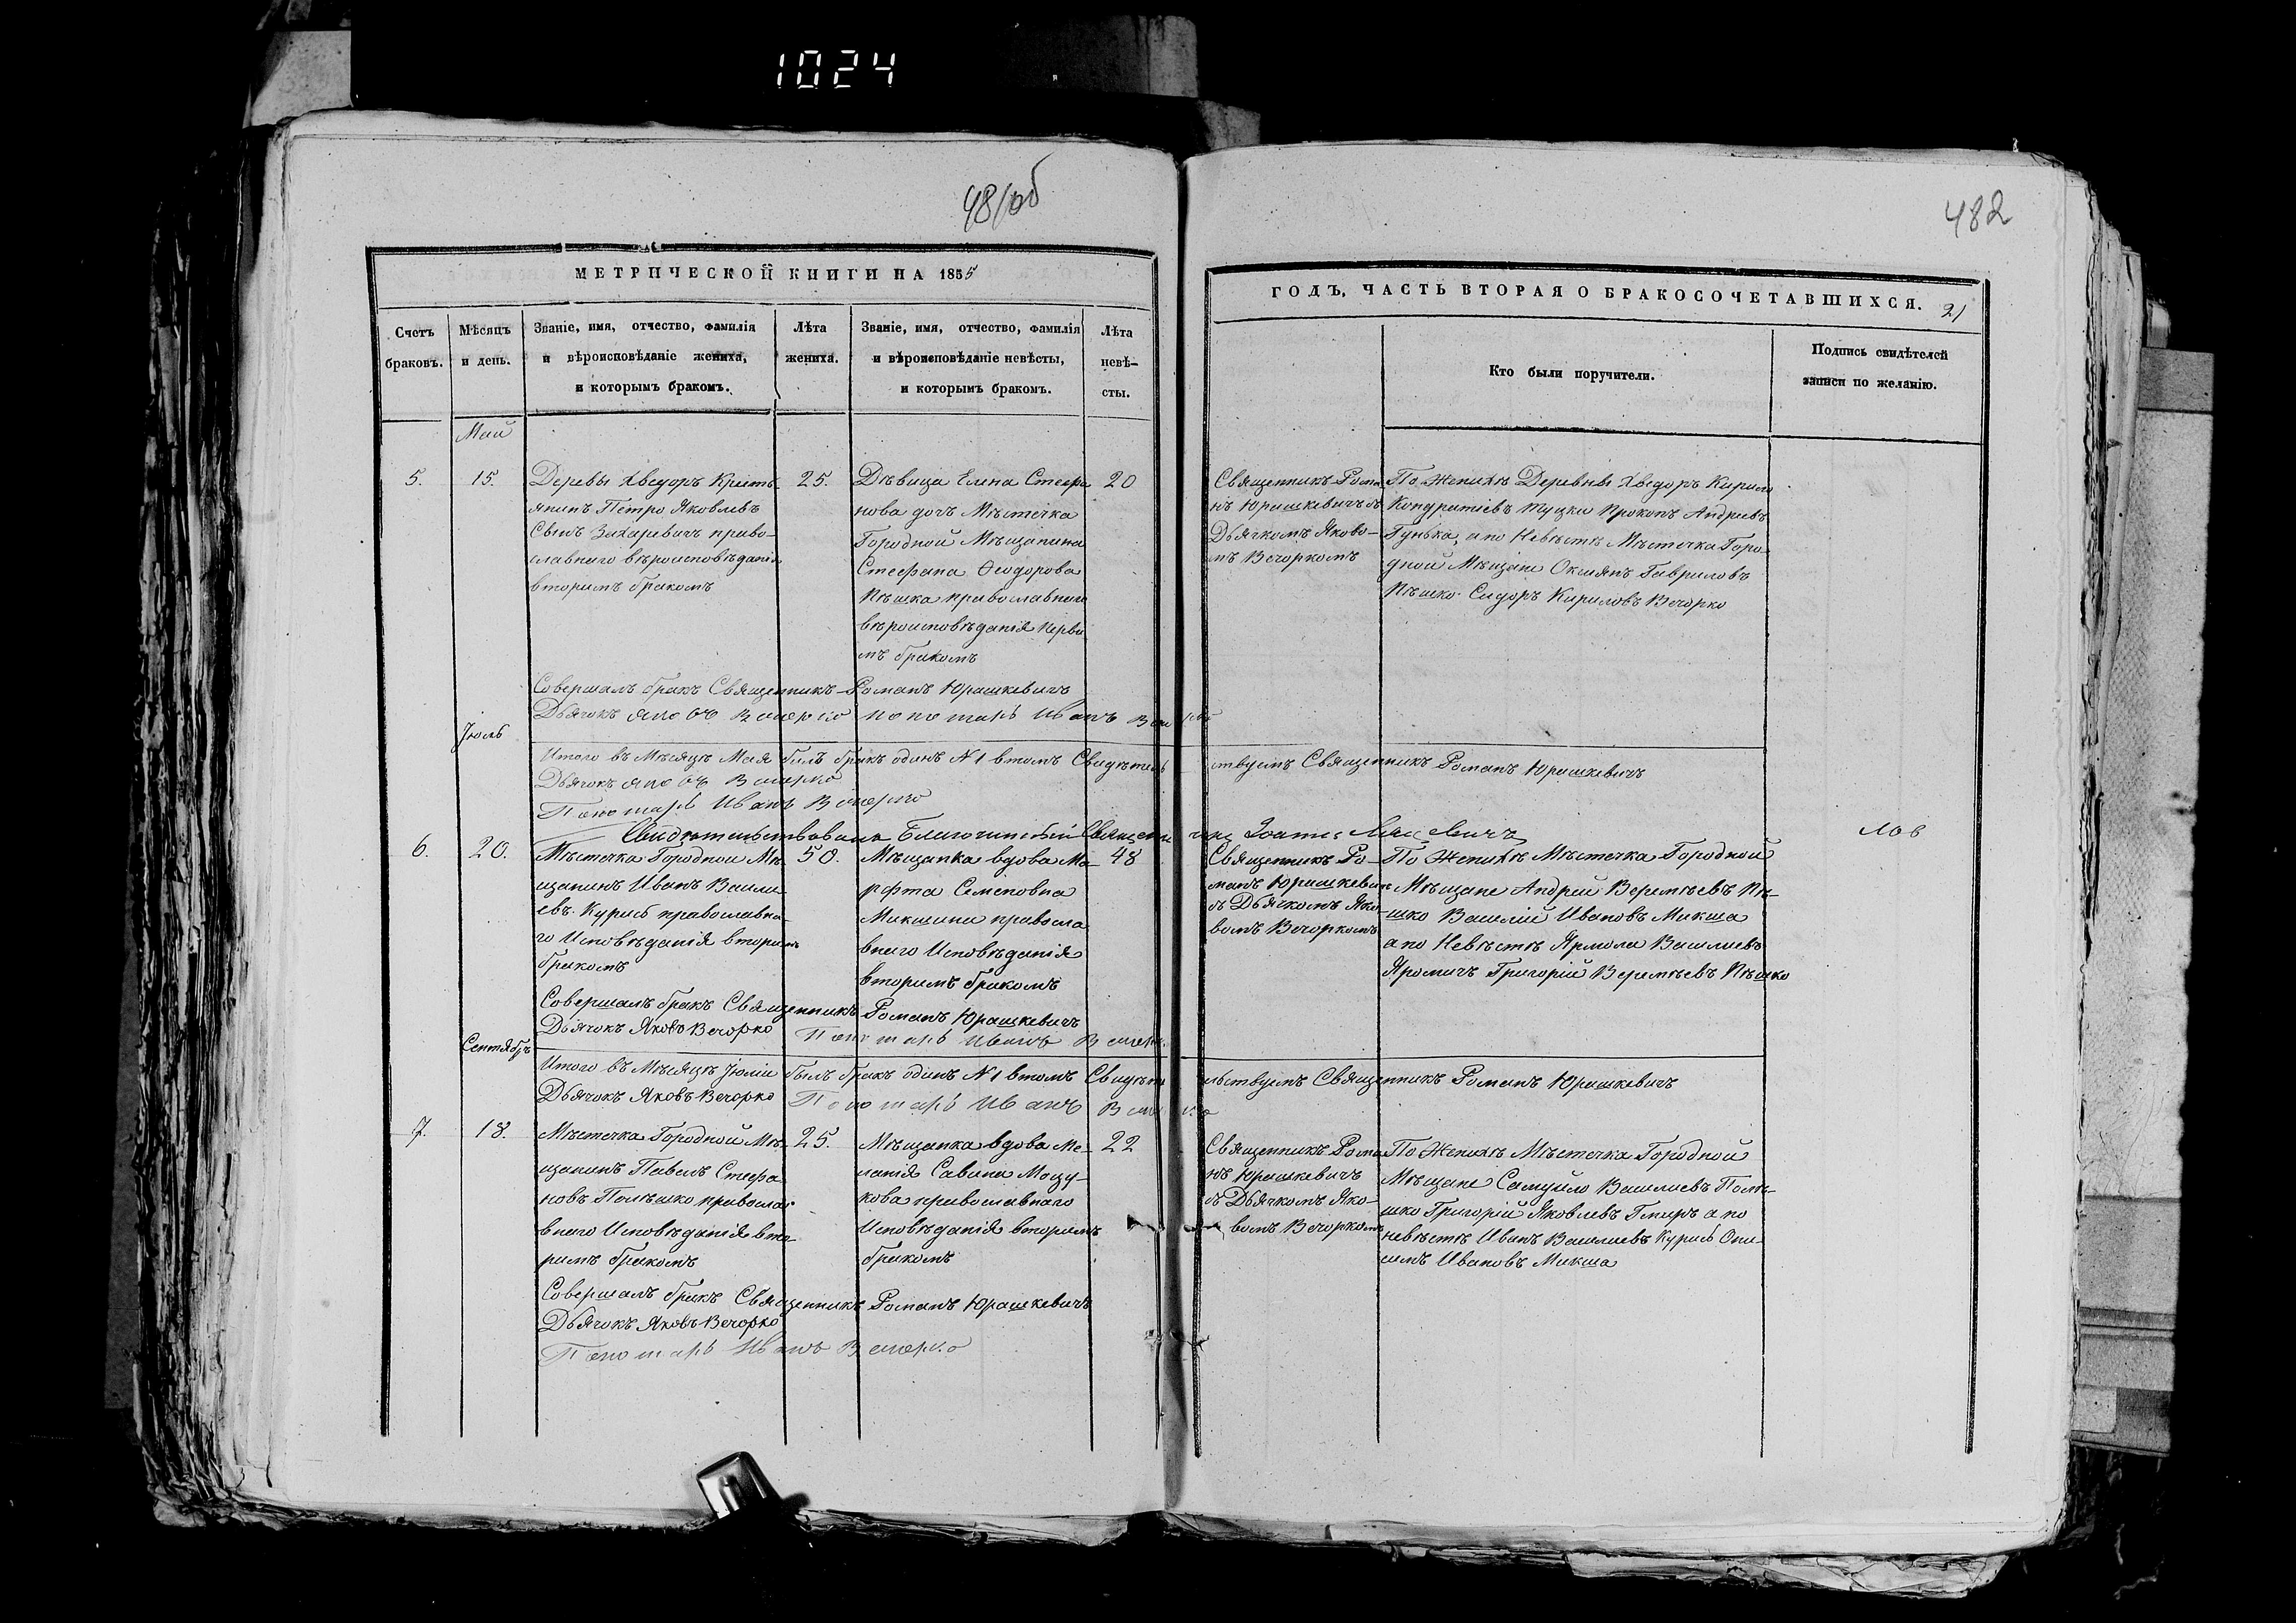 1024
481об
482
МЕТРИЧЕСКОЙ КНИГИ НА 1855
ГОДЪ, ЧАСТЬ ВТОРАЯ О БРАКОСОЧЕТАВШИХСЯ. 21
Счетъ браковъ.
Мѣсяцъ и день.
Званіе, имя, отчество, фамилія и вѣроисповѣданіе жениха, и которымъ бракомъ.
Лѣта жениха.
Званіе, имя, отчество, фамилія и вѣроисповѣданіе невѣсты, и которымъ бракомъ.
Лѣта невѣ-сты.
Кто были поручители.
Подпись свидѣтелей записи по желанію.
Май
5.
15.
Деревы Хведоръ Кресть
янинъ Петро Яковлевъ
Сынъ Захаревичъ право-
славнаго вѣроисповѣданія
вторимъ бракомъ
25.
Дѣвица Елена Стефа
нова дочъ Мѣстечка
Городной Мѣщанина
Стефана Ѳеодорова
Пѣшка православнаго
вѣроисповѣданія перви
мъ бракомъ
20
Священникъ Рома
нъ Юрашкевичъ съ
Дьячкомъ Яково-
мъ Вечоркомъ
По Женихѣ Деревны Хведоръ Кирило
Кондратіевъ Прокопъ Андреевъ
Гунька, а по Невѣстѣ Мѣстечка Горо
дной Мѣщане Гавриловъ
Пѣшко Сидоръ Кириловъ Вечорко
Совершалъ бракъ Священникъ Романъ Юрашкевичъ
Дьячокъ Яковъ Вечорко Пономарь Иванъ Вечорко
Іюль
Итого въ Мѣсяцѣ Мая билъ бракъ одинъ №1 втомъ Свидѣтельствуемъ Священникъ Романъ Юрашкевичъ
Дьячокъ Яковъ Вечорко
Пономарь Иванъ Вечорко
Свидѣтельствовалъ Благочинный Священникъ Іоаннъ
6.
20.
Мѣстечка Городной Мѣ
щанинъ Иванъ Васили
евъ Курисъ православна
го Исповѣданія вторимъ
бракомъ
50.
Мѣщанка вдова Ма
рфта Семеновна
Микшина правосла
внаго Исповѣданія
вторимъ бракомъ
48
Священникъ Ро-
манъ Юрашкевичъ
съ Дьячкомъ Яко-
вомъ Вечоркомъ
По Женихѣ Мѣстечка Городной
Мѣщане Андрей Веремѣевъ Пѣ-
шко Василій Ивановъ Микша
а по Невѣстѣ Ярмола Василіевъ
Яромичъ Григорій Веремѣевъ Пѣшко
Совершалъ бракъ Священникъ Романъ Юрашкевичъ
Дьячокъ Яковъ Вечорко Пономарь Иванъ Вечорко
Сентябръ
Итого въ Мѣсяцѣ Іюліи былъ бракъ одинъ №1 втомъ Свидѣтельствуемъ Священникъ Романъ Юрашкевичъ
Дьячокъ Яковъ Вечорко Пономарь Иванъ Вечорко
7.
18.
Мѣстечка Городной Мѣ-
щанинъ Павелъ Стефа
новъ Полѣшко правосла
внаго Исповѣданія вто-
римъ бракомъ
25.
Мѣщанка вдова Ме-
ланія Савина Моцу-
кова православнаго
Исповѣданія вторимъ
бракомъ
22
Священникъ Рома
нъ Юрашкевичъ
съ Дьячкомъ Яко-
вомъ Вечоркомъ
По Женихѣ Мѣстечка Городной
Мѣщане Самуйло Василіевъ Полѣ-
шко Григорій Яковлевъ Гмиръ а по
невѣстѣ Иванъ Василіевъ Курисъ Они
симъ Ивановъ Микша
Совершалъ бракъ Священникъ Романъ Юрашкевичъ
Дьячокъ Яковъ Вечорко
Пономарь Иванъ Вечорко